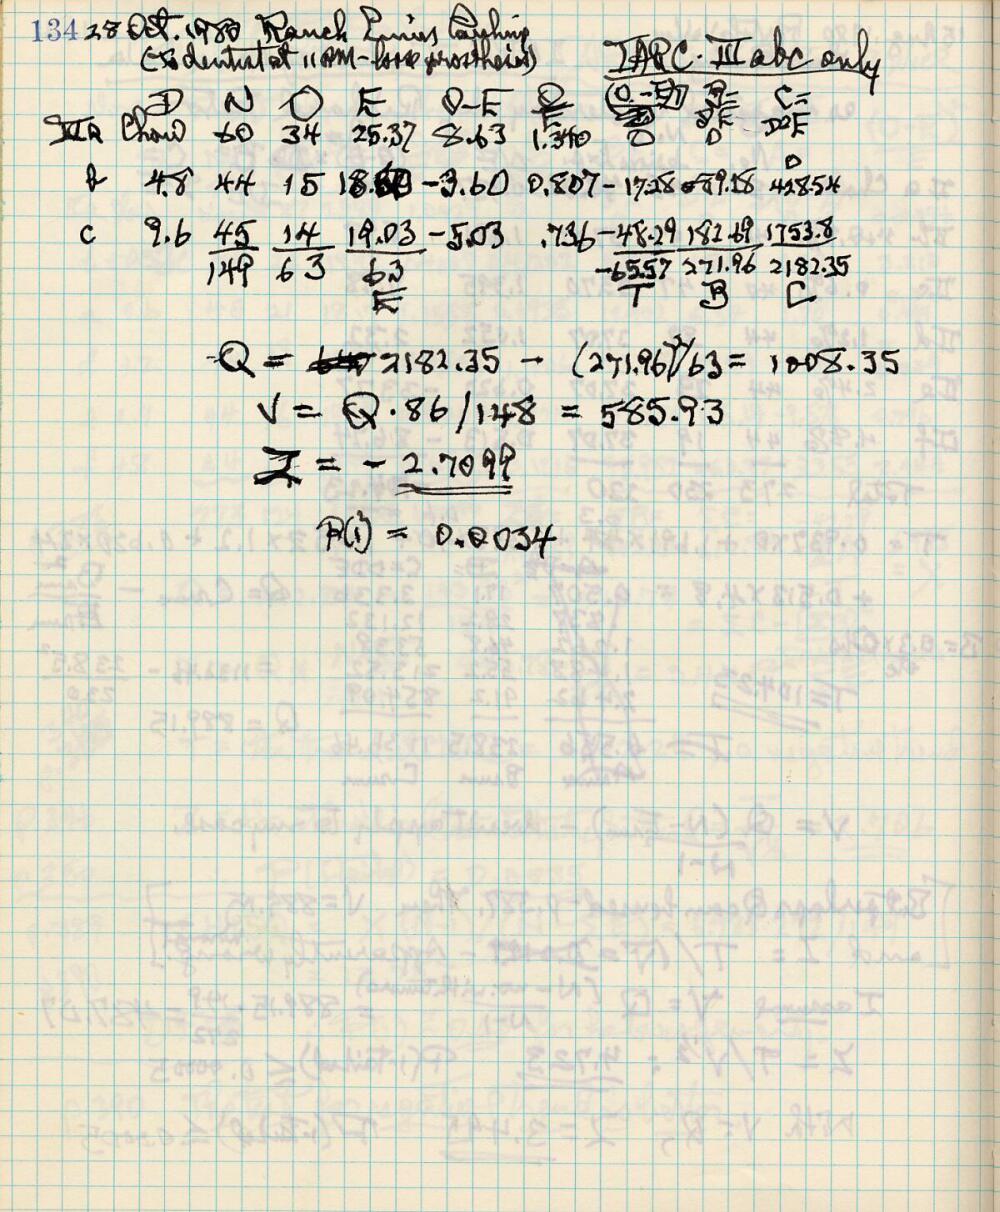 134 28 Oct. 1980 Ranch Linus Pauling
(to dentist at 11 AM - prosthesis)
IARC. III abc only
D N O E O-E O/E (O-E)D B= DE C= D²E
IIIa Chow 60 34 25.37 8.63 1.340 0 0 0
b 4.8 44 15 18.60 -3.60 0.807 -17.28 89.28 428.54
c 9.6 45 14 19.03 -5.03 .736 -48.29 182.69 1753.8
149 63 63 -65.57 271.96 2182.35
E T B C
Q = 2182.35 - (271.96)²/63 = 1008.35
V = Q · 86/148 = 585.93
Z = - 2.7099
P(1) = 0.0034